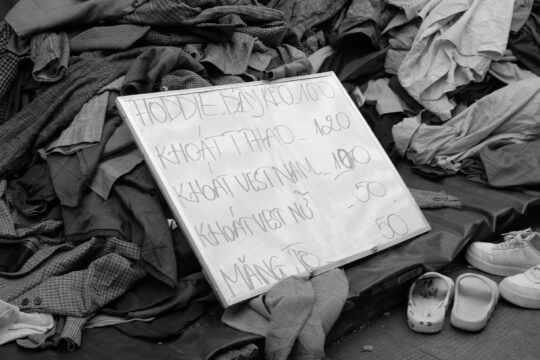 HODDIE DÂY KÉO 100
KHOÁT T THAO - 120
KHOÁT VEST NAM - 100
KHOÁT VEST NỮ - 50
MĂNG TÔ 50